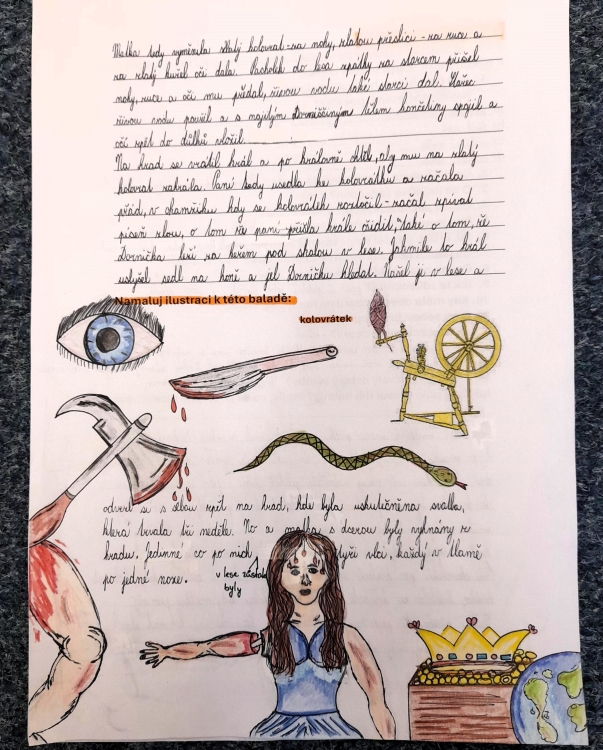 Matka tedy vyměnila zlatý kolovrat - za nohy, zlatou přeslici - za ruce a
za zlatý kužel oči dala. Pacholík do lesa zpátky za starcem přišel
nohy, ruce a oči mu předal, živou vodu také starci dal. Stařec
živou vodu použil a s mrtvým Dorniččiným tělem končetiny spojil a
oči zpět do důlků vložil.
Na hrad se vrátil král a po královně chtěl, aby mu na zlatý
kolovrat zahrála. Paní tedy usedla ke kolovrátku a začala
příst, v okamžiku kdy se kolovrátek roztočil - začal zpívat
píseň zlou, o tom že paní přišla krále ošidit, také o tom, že
Dornička leží za keřem pod skalou v lese. Jakmile to král
uslyšel sedl na koně a jel Dorničku hledat. Našel ji v lese a
Namaluj ilustraci k této baladě:
kolovrátek
odvezl si s sebou zpět na hrad, kde byla uskutečněna svatba,
která trvala tři neděle. No a matka s dcerou byly vyhnány z
hradu. Jedinné co po nich čtyři vlci, každý v tlamě
v lese zůstalo
byly
po jedné noze.